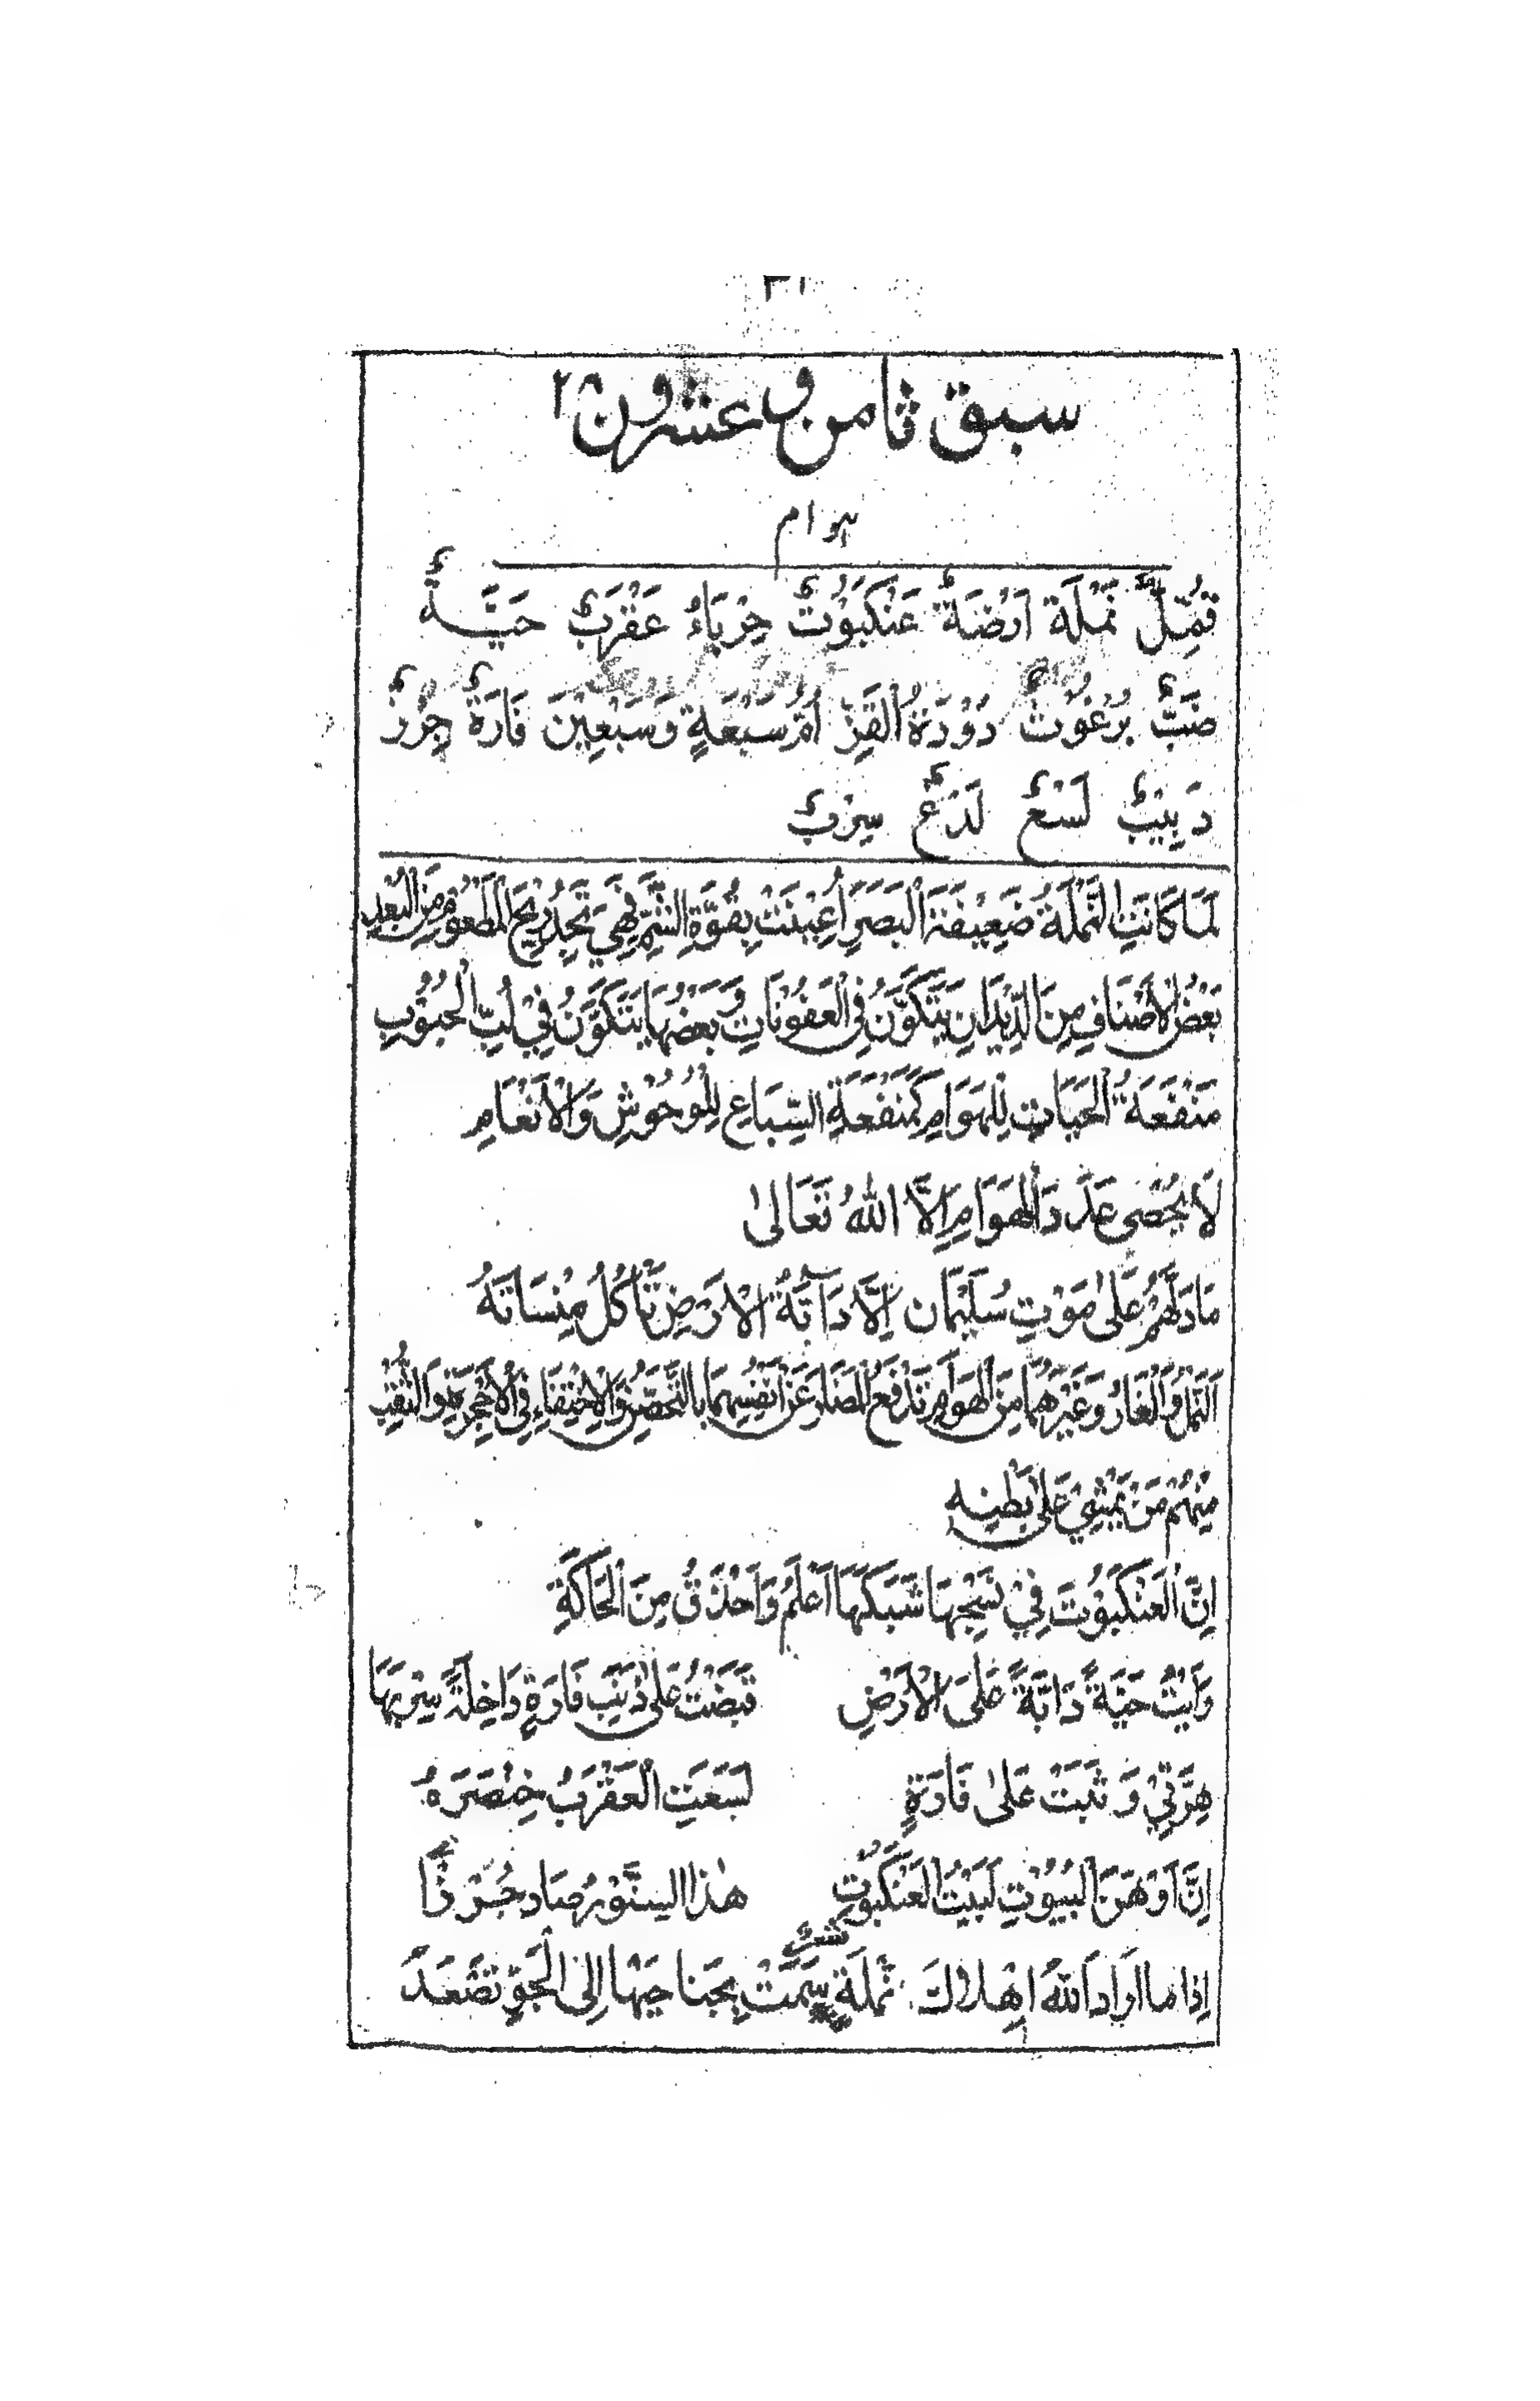 سبق ثامن و عشرون ۲۸
ہوام
قُمَّلٌ نَمْلَة اَرْضَةٌ عَنْكَبُوْتٌ حِرْبَاءُ عَقْرَبٌ حَيَّةٌ
ضَبٌّ بُرْغُوْثٌ دَوْدَةُ الْقَزِّ اُمُّ سَبْعَةٍ وَسَبْعِيْنَ فَارَةٌ جِرْذٌ
دَبِيْبٌ لَسْعٌ لَدْغٌ سِرْبٌ
لَمَا كَانَتِ النَّمْلَةُ ضَعِيْفَةَ الْبَصَرِ اُعِيْنَتْ بِقُوَّةِ الشَّمِّ فَهِيَ تَجِدُ رِيْحَ الْمَطْعُوْمِ مِنَ الْبُعْدِ
بَعْضُ الْاَصْنَافِ مِنَ الدِّيْدَانِ يَتَكَوَّنُ فِى الْعَفُوْنَاتِ وَبَعْضُهَا يَتَكَوَّنُ فِيْ لُبِّ الْحُبُوْبِ
مَنْفَعَةُ الْحَيَاتِ لِلْهَوَامِ كَمَنْفَعَةِ السِّبَاعِ لِلْوُحُوْشِ وَالْاَنْعَامِ
لَا يُحْصٰى عَدَدَ الْهَوَامِ اِلَّا اللهُ تَعَالىٰ
مَا دَلَّهُمْ عَلىٰ مَوْتِ سُلَيْمَان اِلَّا دَآبَّةُ الْاَرْضِ تَأْكُلُ مِنْسَاتَهُ
اَلنَّمْلُ وَالْفَارُ وَغَيْرُهُمَا مِنَ الْهَوَامِ تَدْفَعُ الْمَضَارَ عَنْ اَنْفُسِهِمَا بِالتَّحَصُّنِ وَالْاِخْتِفَاءِ فِى الْاَحْجِرَةِ وَالثُّقْبِ
مِنْهُمْ مَنْ يَمْشِيْ عَلىٰ بَطْنِهٖ
اِنَّ الْعَنْكَبُوْتَ فِيْ نَسْجِهَا شَبَكَهَا اَعْلَمُ وَاَحْذَقُ مِنَ الْحَاكَةِ
رَاَيْتُ حَيَّةً دَابَّةً عَلَى الْاَرْضِ قَبَضْتُ عَلىٰ ذَنَبِ فَارَةٍ دَاخِلَةً سِرْبَهَا
هِرَّتِيْ وَثَبَتْ عَلىٰ فَارَةٍ لَسَعَتِ الْعَقْرَبُ خِنْصَرَهٗ
اِنَّ اَوْهَنَ الْبُيُوْتِ لَبَيْتُ الْعَنْكَبُوْتِ هٰذَا السِّنَّوْرُ صَادَ جُرَذًا
شعر
اِذَا مَا اَرَادَ اللهُ اِهْلَاكَ نَمْلَةٍ سَمَتْ بِجَنَاحَيْهَا اِلَى الْجَوِّ تَصْعَدُ